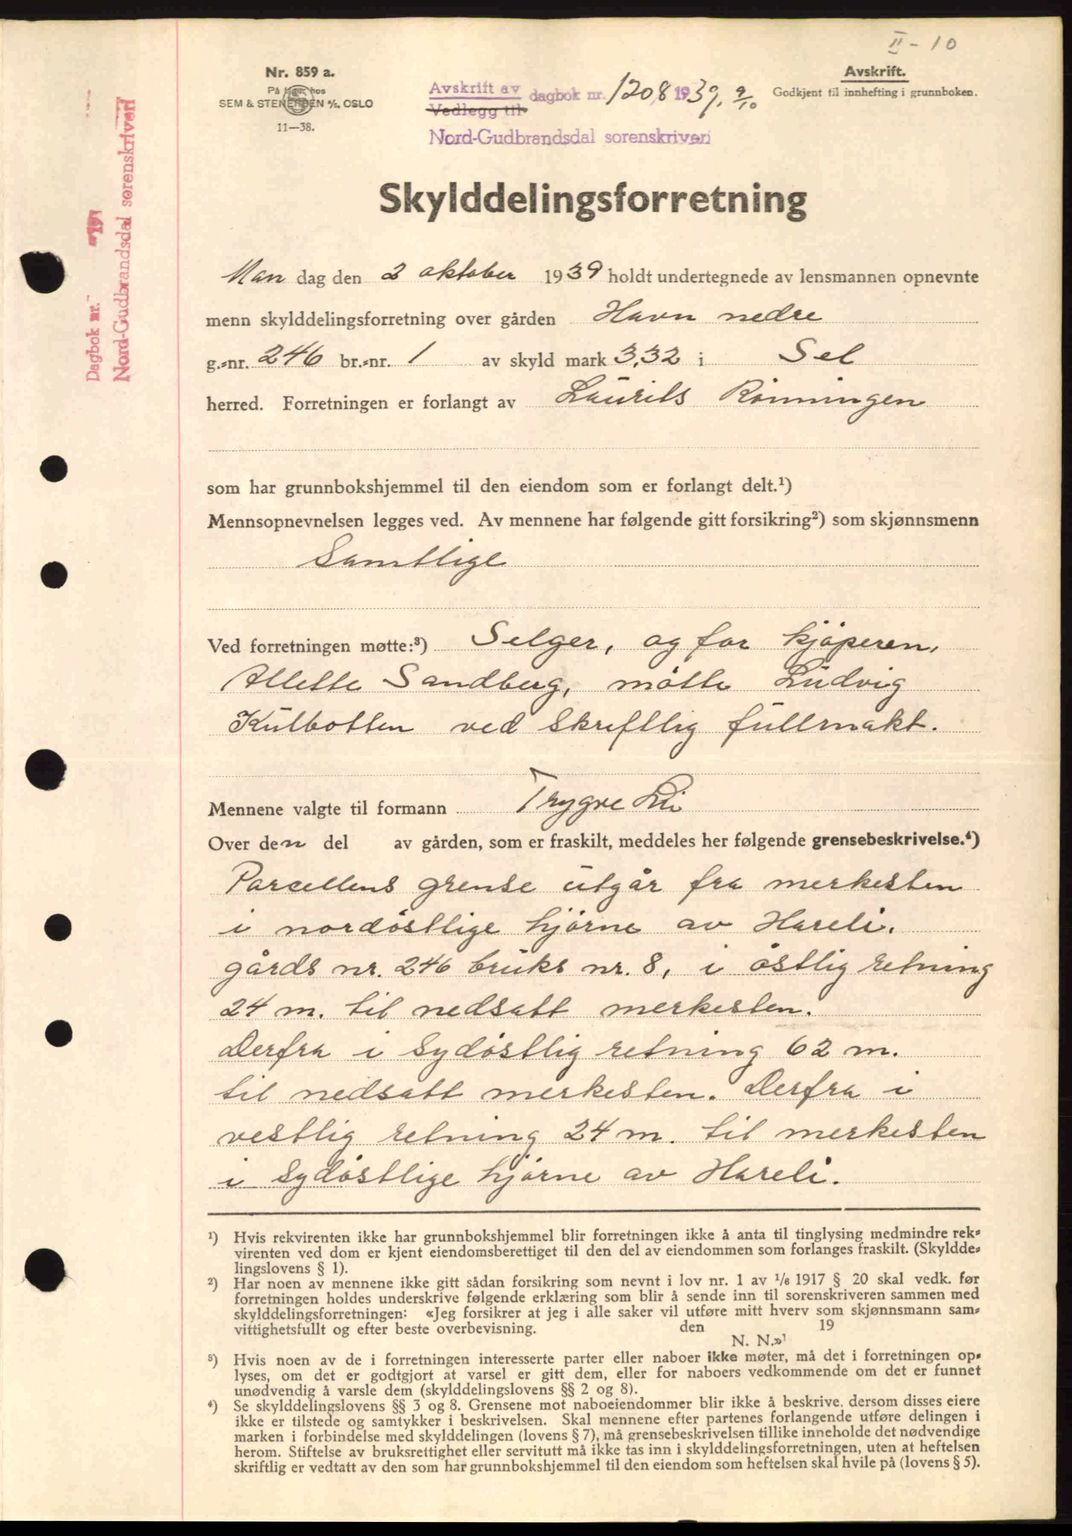 II - 10
Nr. 859 a.
På lager hos
SEM & STENERSEN A/S, OSLO
11—38.
Avskrift av dagbok nr. 1208 1939, 9/10
Vedlegg til
Nord-Gudbrandsdal sorenskriveri
Avskrift.
Godkjent til innhefting i grunnboken.
Dagbok nr. 19
Nord-Gudbrandsdal sorenskriveri
Skylddelingsforretning
Man dag den 2 oktober 1939 holdt undertegnede av lensmannen opnevnte
menn skylddelingsforretning over gården Havn nedre
g.-nr. 246 br.-nr. 1 av skyld mark 3,32 i Sel
herred. Forretningen er forlangt av Laurits Rönningen
som har grunnbokshjemmel til den eiendom som er forlangt delt.¹)
Mennsopnevnelsen legges ved. Av mennene har følgende gitt forsikring²) som skjønnsmenn
Samtlige
Ved forretningen møtte:³) Selger, og for kjöperen,
Allette Sandberg, mötte Ludvig
Kulbotten ved skriftlig fullmakt.
Mennene valgte til formann Trygve Lii
Over den del av gården, som er fraskilt, meddeles her følgende grensebeskrivelse.⁴)
Parcellens grense utgår fra merkesten
i nordöstlige hjörne av Hareli,
gårds nr. 246 bruks nr. 8, i östlig retning
24 m. til nedsatt merkesten.
Derfra i sydöstlig retning 62 m.
til nedsatt merkesten. Derfra i
vestlig retning 24 m. til merkesten
i sydöstlige hjörne av Hareli.
¹) Hvis rekvirenten ikke har grunnbokshjemmel blir forretningen ikke å anta til tinglysing medmindre rek-
virenten ved dom er kjent eiendomsberettiget til den del av eiendommen som forlanges fraskilt. (Skyldde-
lingslovens § 1).
²) Har noen av mennene ikke gitt sådan forsikring som nevnt i lov nr. 1 av 1/8 1917 § 20 skal vedk. før
forretningen holdes underskrive følgende erklæring som blir å sende inn til sorenskriveren sammen med
skylddelingsforretningen: «Jeg forsikrer at jeg i alle saker vil utføre mitt hverv som skjønnsmann sam-
vittighetsfullt og efter beste overbevisning. den 19
N. N.»
³) Hvis noen av de i forretningen interesserte parter eller naboer ikke møter, må det i forretningen op-
lyses, om det er godtgjort at varsel er gitt dem, eller for naboers vedkommende om det er funnet
unødvendig å varsle dem (skylddelingslovens §§ 2 og 8).
⁴) Se skylddelingslovens §§ 3 og 8. Grensene mot naboeiendommer blir ikke å beskrive, dersom disses eiere
ikke er tilstede og samtykker i beskrivelsen. Skal mennene efter partenes forlangende utføre delingen i
marken i forbindelse med skylddelingen (lovens § 7), må grensebeskrivelsen tillike inneholde det nødvendige
herom. Stiftelse av bruksrettighet eller servitutt må ikke tas inn i skylddelingsforretningen, uten at heftelsen
skriftlig er vedtatt av den som har grunnbokshjemmel til den eiendom som heftelsen skal hvile på (lovens § 5).